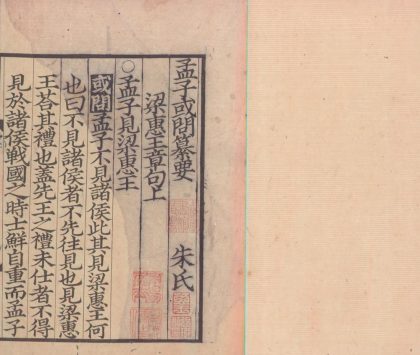 孟子或問纂要
朱氏
梁惠王章句上
○孟子見梁惠王
或問孟子不見諸侯此其見梁惠王何
也曰不見諸侯者不先往見也見梁惠
王荅其禮也蓋先王之禮未仕者不得
見於諸侯戰國之時士鮮自重而孟子